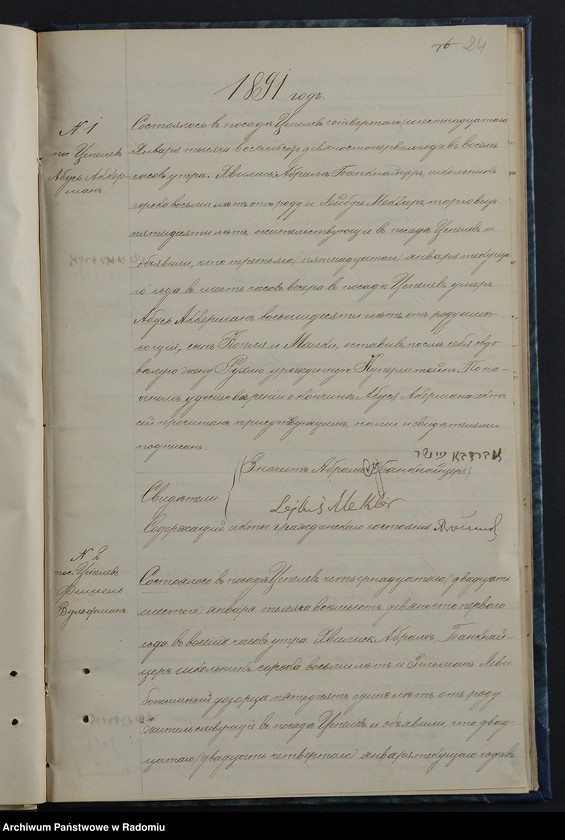 24
1891 годъ.
№ 1
пос. Цепелевъ
Абусь Аккер-
манъ.
Состоялось въ посадѣ Цепелевѣ четвертаго (шестнадцатаго)
Января тысяча восемьсотъ девяносто перваго года въ восемь
часовъ утра. Явились Абрамъ Банкнайцеръ, школьникъ
сорока восьми лѣтъ отъ роду и Лейбусь Меклеръ торговецъ
пятидесяти лѣтъ, жительствующіе въ посадѣ Цепелевѣ и
объявили, что третьяго (пятнадцатаго) января текуща-
го года въ шесть часовъ вечера въ посадѣ Цепелевѣ умеръ
Абусь Аккерманъ восьмидесяти лѣтъ отъ роду
сынъ и Малки, оставивъ послѣ себя вдо-
вую жену урожденную По на-
стномъ удостовѣреніи о кончинѣ Абуся Акермана актъ
сей прочитанъ присутствующимъ, нами и свидѣтелями
подписанъ
(Значитъ Абрамъ Банкнайцеръ)
Свидѣтели
Lejbuś Mekler
Содержащій акты гражданскаго состоянія
№ 2
пос. Цепелевъ
Вульфманъ
Состоялось въ посадѣ Цепелевѣ четырнадцатаго (двадцать
шестого) января тысяча восемьсотъ девяносто перваго
года въ восемь часовъ утра. Явились, Абрамъ Банкнай-
церъ школьникъ сорока восьми лѣтъ и Леви
божничный дозорца пятьдесятъ одинъ лѣтъ отъ роду
жительствующіе въ посадѣ Цепелевѣ и объявили, что двѣнад-
цатаго (двадцать четвертаго) января текущаго года въ
Archiwum Państwowe w Radomiu